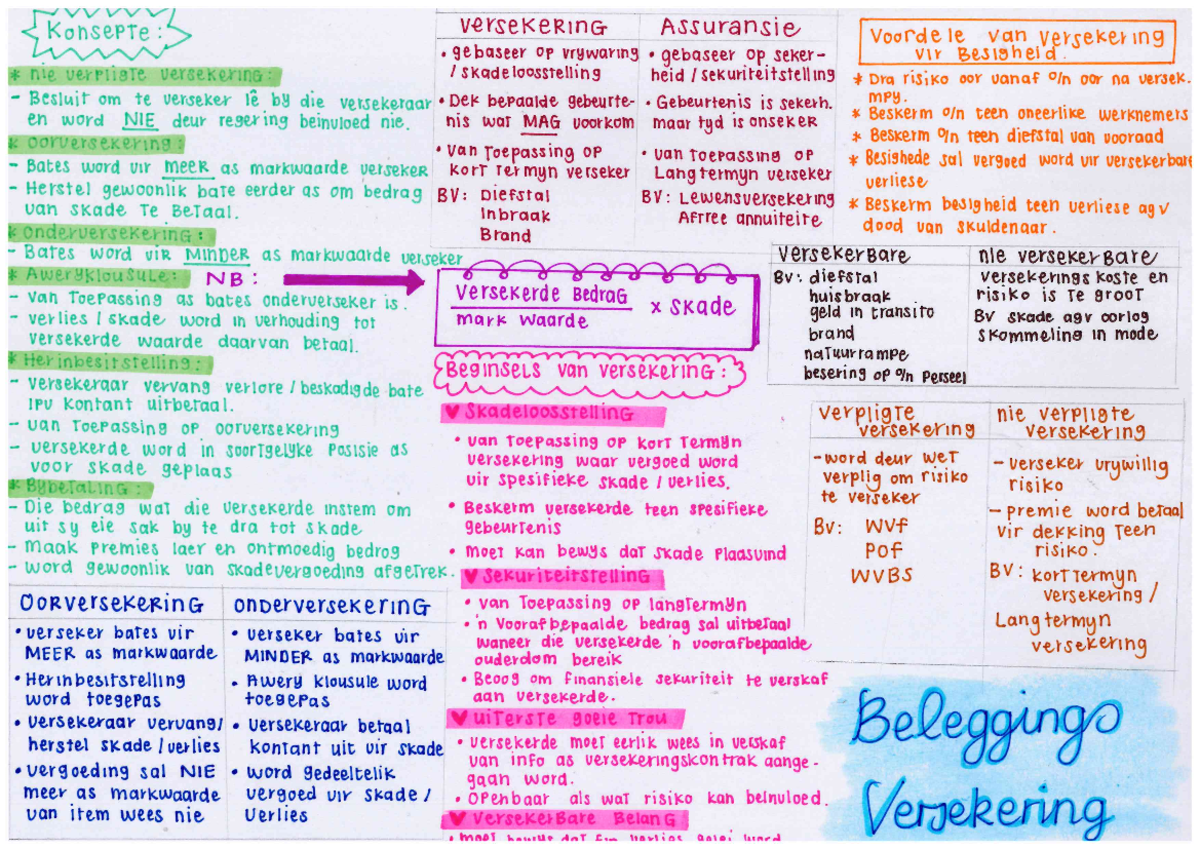 Konsepte:
* nie verpligte versekering:
- Besluit om te verseker lê by die versekeraar
en word NIE deur regering beinvloed nie.
* oorversekering:
- Bates word vir MEER as markwaarde verseker
- Herstel gewoonlik bate eerder as om bedrag
van skade te betaal.
* onderversekering:
- Bates word vir MINDER as markwaarde verseker
* Aweryklousule: NB:
- van toepassing as bates onderverseker is.
- verlies / skade word in verhouding tot
versekerde waarde daarvan betaal.
* Herinbesitstelling:
- versekeraar vervang verlore / beskadigde bate
IPV kontant uitbetaal.
- van toepassing op oorversekering
- versekerde word in soortgelyke posisie as
voor skade geplaas
* Bybetaling:
- Die bedrag wat die versekerde instem om
uit sy eie sak by te dra tot skade
- Maak premies laer en ontmoedig bedrog
- word gewoonlik van skadevergoeding afgetrek.
OORVERSEKERING
• verseker bates vir
MEER as markwaarde
• Herinbesitstelling
word toegepas
• versekeraar vervang/
herstel skade / verlies
• vergoeding sal NIE
meer as markwaarde
van item wees nie
ONDERVERSEKERING
• verseker bates vir
MINDER as markwaarde
• Awery klousule word
toegepas
• versekeraar betaal
kontant uit vir skade
• word gedeeltelik
vergoed vir skade /
verlies
VERSEKERING
• gebaseer op vrywaring
/ skadeloosstelling
• Dek bepaalde gebeurte-
nis wat MAG voorkom
• van toepassing op
kort termyn verseker
BV: Diefstal
Inbraak
Brand
Assuransie
• gebaseer op seker-
heid / sekuriteitstelling
• Gebeurtenis is sekerh.
maar tyd is onseker
• van toepassing op
Langtermyn verseker
BV: Lewensversekering
Aftree annuiteite
Versekerde Bedrag
mark waarde
x skade
Beginsels van versekering:
♥ Skadeloosstelling
• van toepassing op kort termyn
versekering waar vergoed word
vir spesifieke skade / verlies.
• Beskerm versekerde teen spesifieke
gebeurtenis
• moet kan bewys dat skade plaasvind
♥ Sekuriteitstelling
• van toepassing op langtermyn
• 'n voorafbepaalde bedrag sal uitbetaal
waneer die versekerde 'n voorafbepaalde
ouderdom bereik
• Beoog om finansiele sekuriteit te verskaf
aan versekerde.
♥ uiterste goeie trou
• versekerde moet eerlik wees in verskaf
van info as versekeringskontrak aange-
gaan word.
• openbaar als wat risiko kan beïnvloed.
♥ Versekerbare Belang
• moet bewys dat fin verlies gelei word
Voordele van versekering
vir Besigheid.
* Dra risiko oor vanaf o/n oor na versek.
mpy.
* Beskerm o/n teen oneerlike werknemers
* Beskerm o/n teen diefstal van vooraad
* Besighede sal vergoed word vir versekerbare
verliese
* Beskerm besigheid teen verliese agv
dood van skuldenaar.
Versekerbare
BV: diefstal
huisbraak
geld in transito
brand
natuurrampe
besering op o/n perseel
nie versekerbare
versekerings koste en
risiko is te groot
BV skade agv oorlog
skommeling in mode
verpligte
versekering
- word deur wet
verplig om risiko
te verseker
BV: WVF
POF
WVBS
nie verpligte
versekering
- verseker vrywillig
risiko
- premie word betaal
vir dekking teen
risiko.
BV: korttermyn
versekering /
Langtermyn
versekering
Beleggings
Versekering